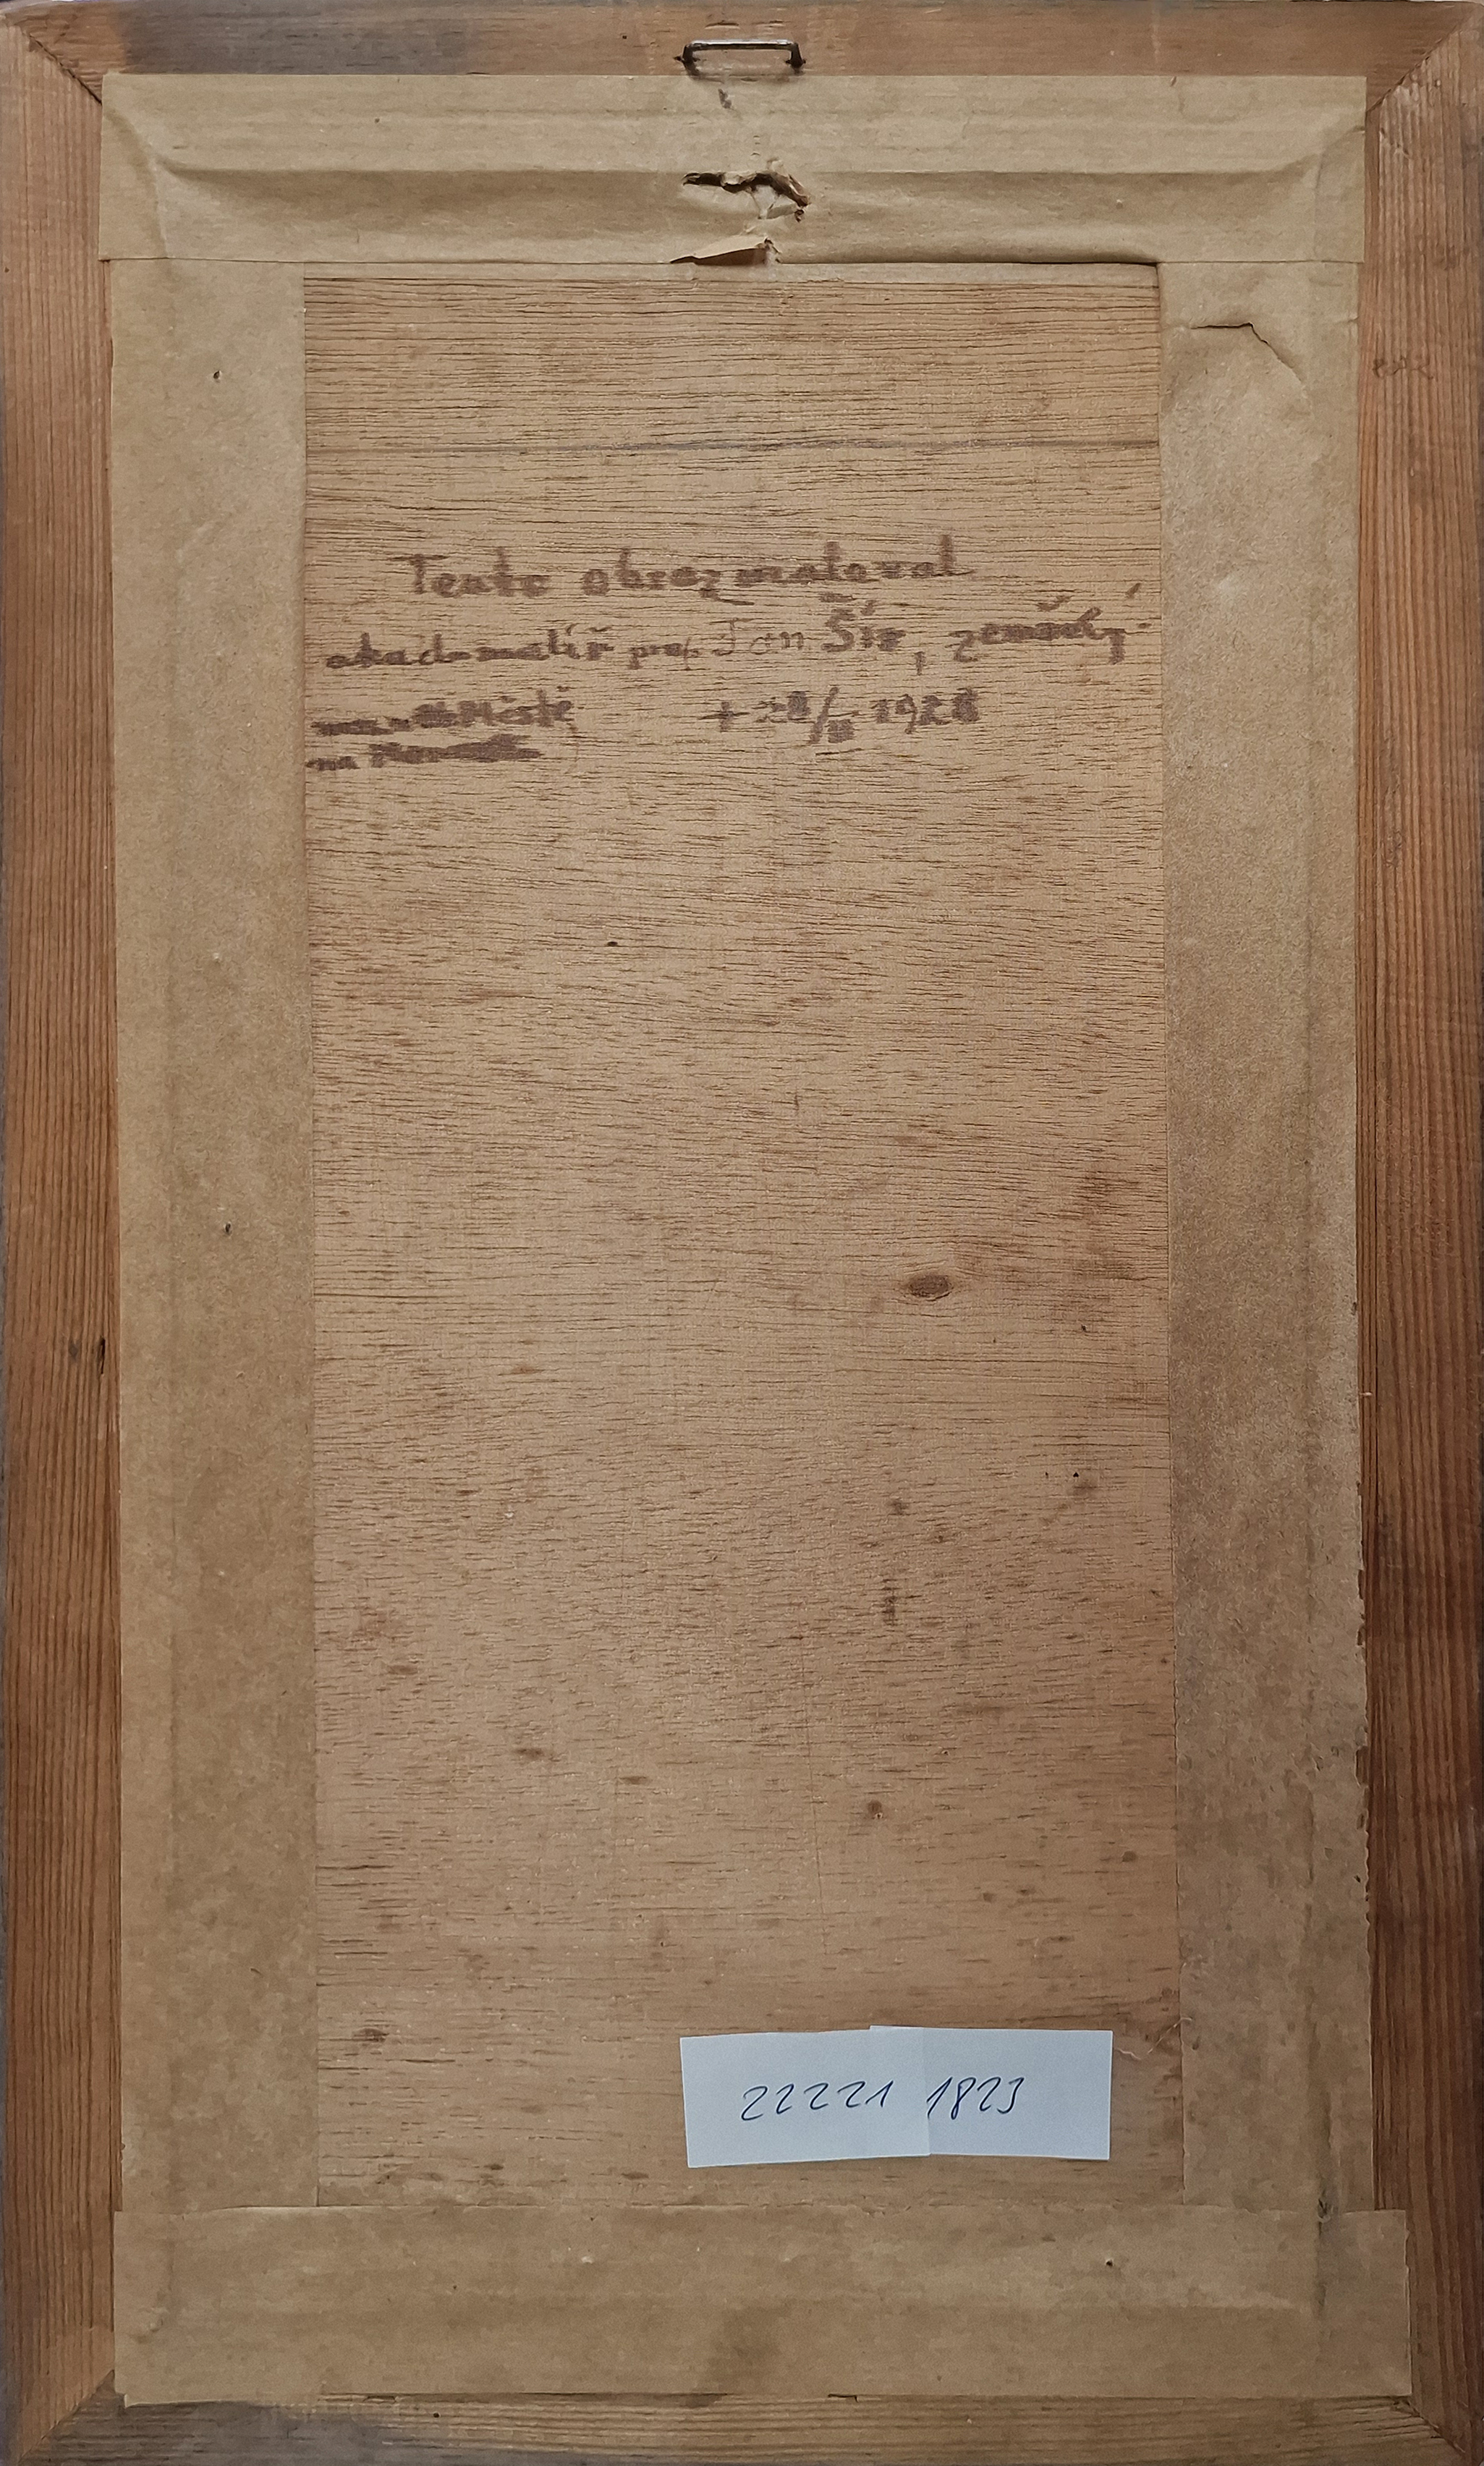 Tento obraz maloval
akad. malíř prof. Jan Šír, zemřelý
Městě + 1928
na
22221 1823